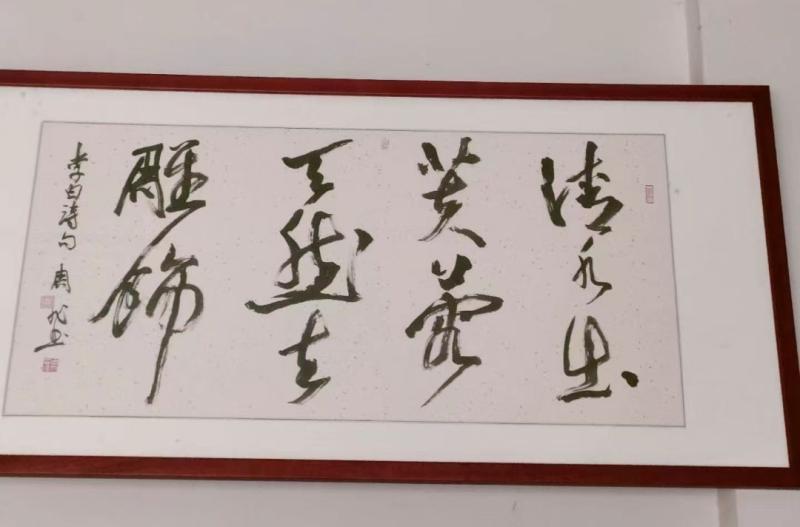 清水出
芙蓉
天然去
雕饰
李白诗句 周